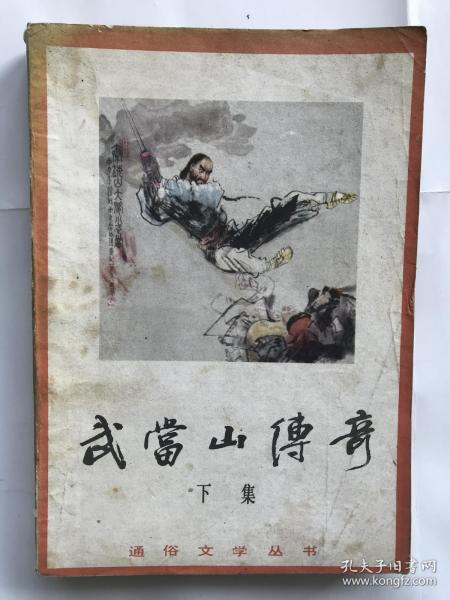 武當山傳奇
下集
通俗文学丛书
孔夫子旧书网
www.kongfz.com